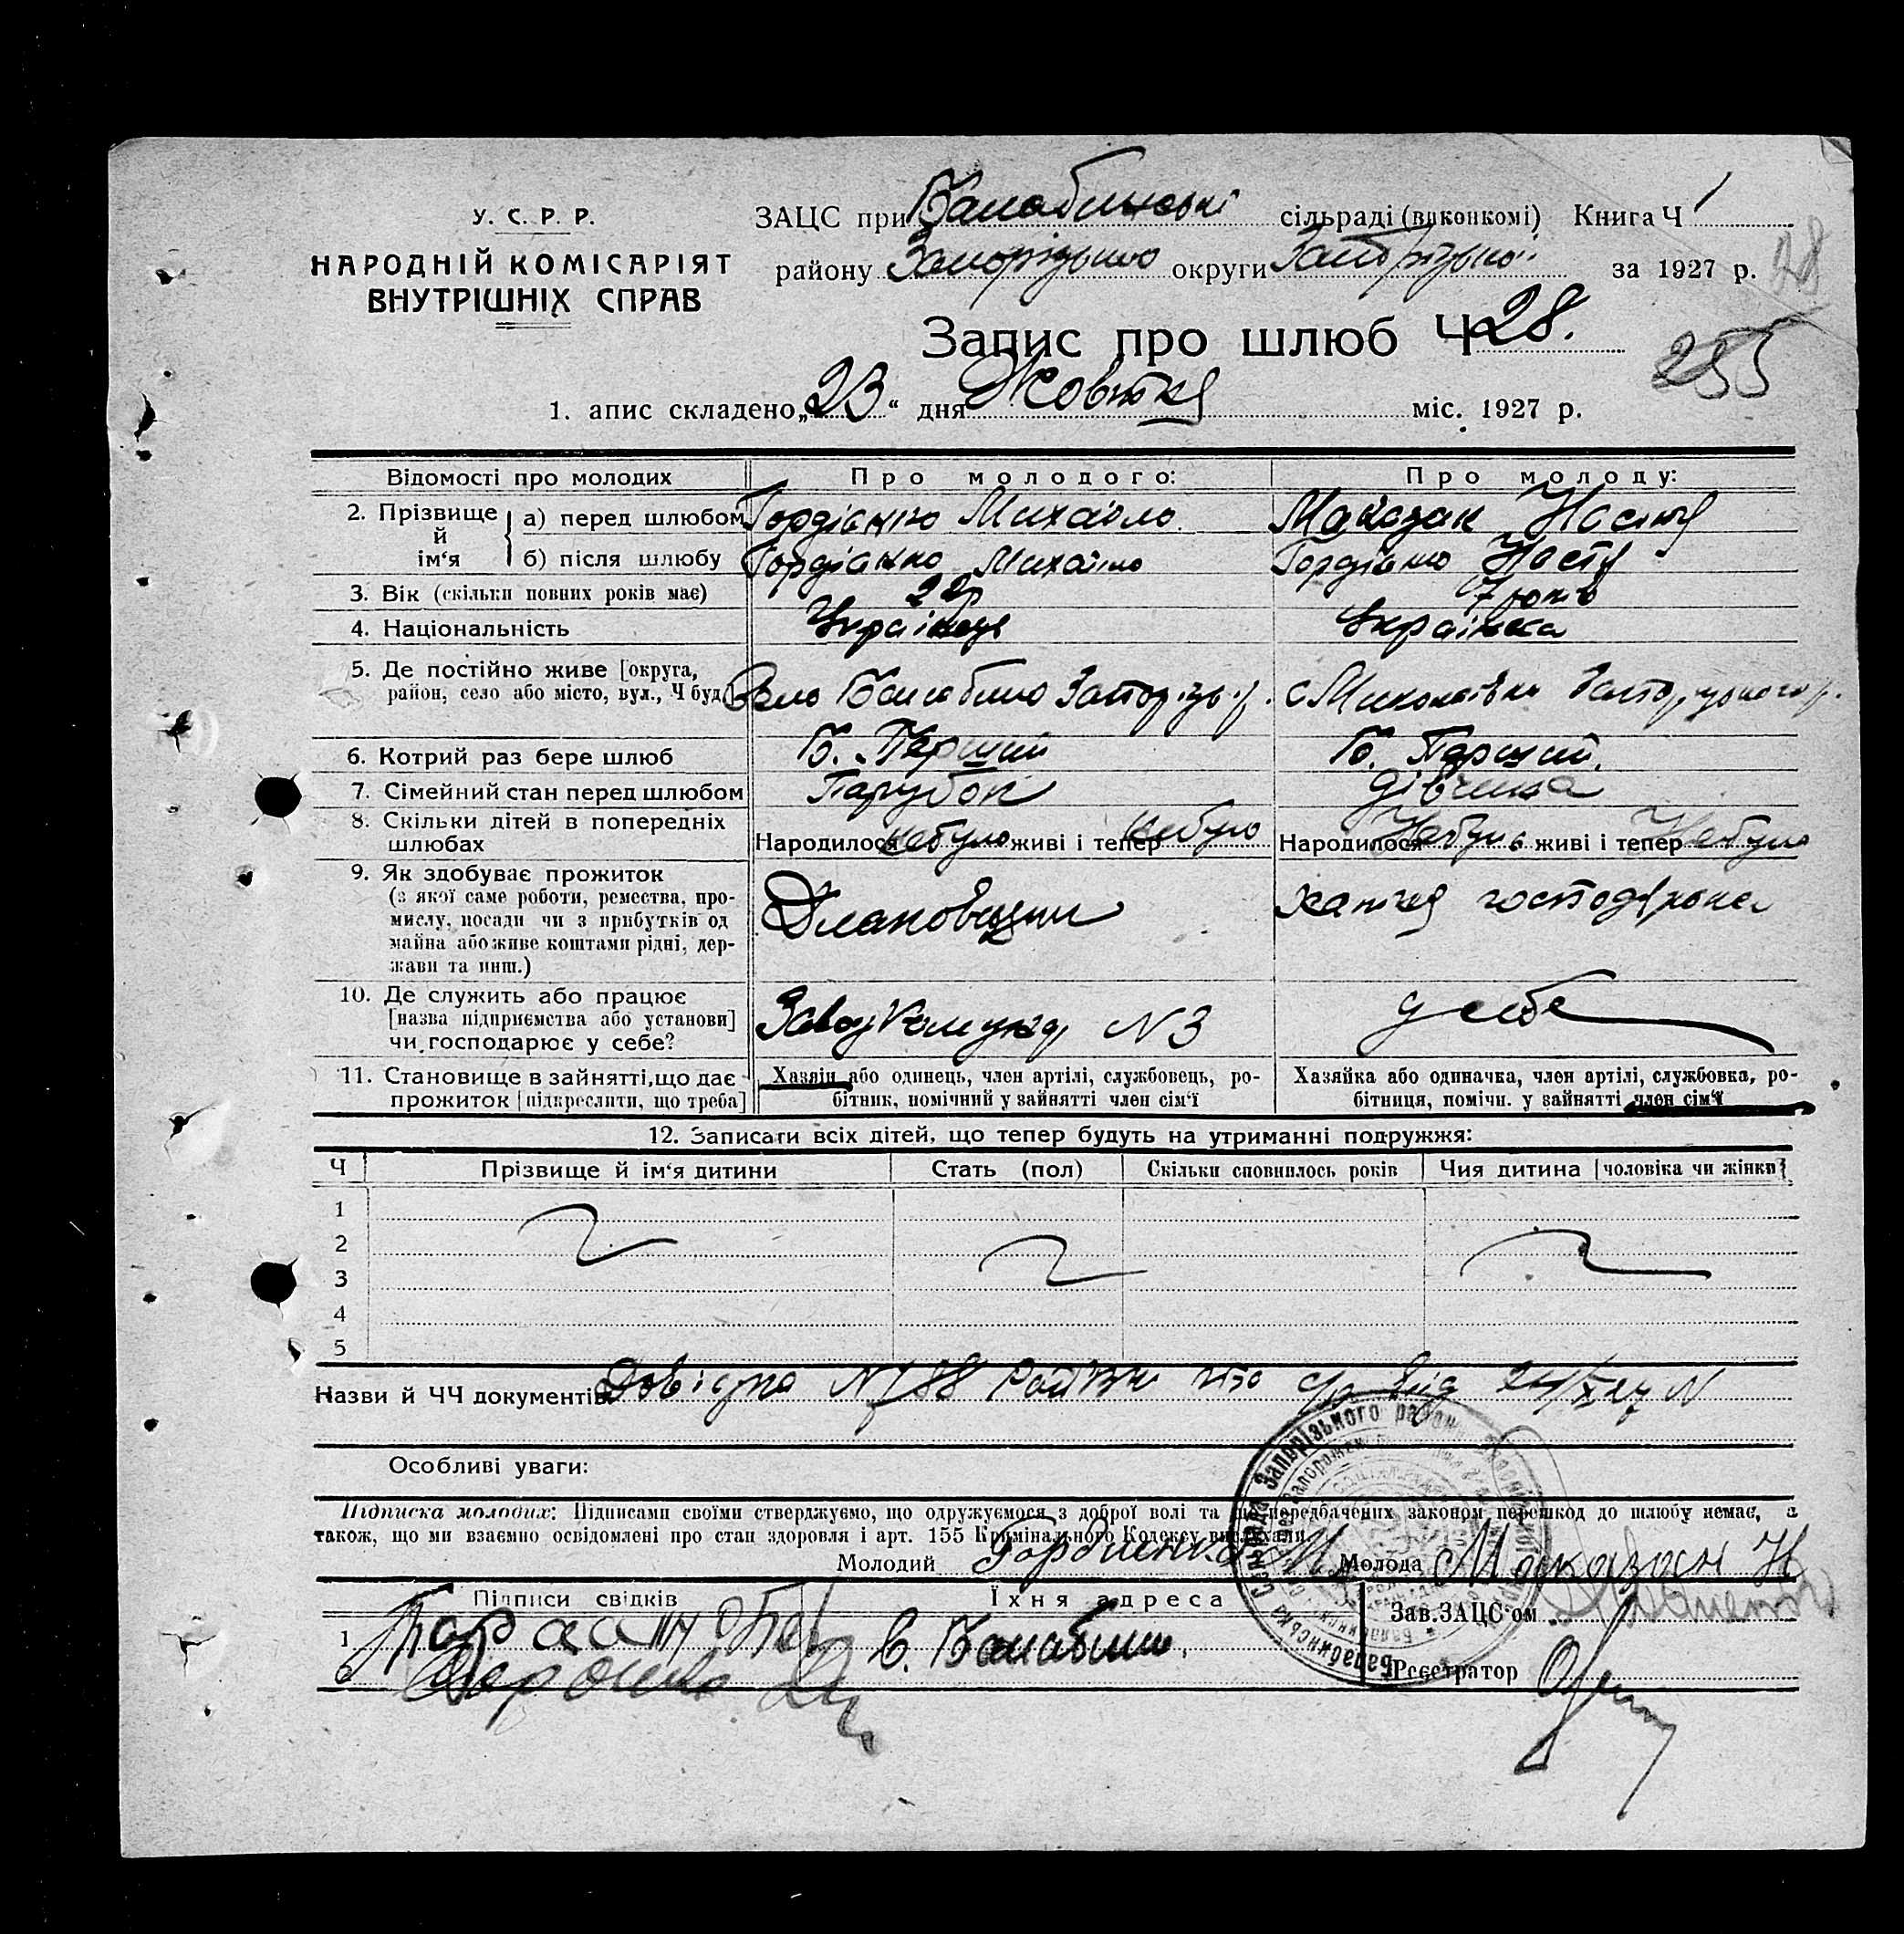 У. С. Р. Р.
НАРОДНІЙ КОМІСАРІЯТ
ВНУТРІШНІХ СПРАВ
ЗАЦС при Балабинські сільраді (виконкомі) Книга Ч 1
району Запорізького округи Запорізької за 1927 р.
28
Запис про шлюб Ч 28.
255
1. апис складено „23“ дня Жовтня міс. 1927 р.
Відомості про молодих Про молодого: Про молоду:
2. Прізвище й ім‘я
а) перед шлюбом Гордіенко Михайло Маказан Настя
б) після шлюбу Гордіенко Михайло Гордіенко Настя
3. Вік (скільки повних років має) 22р
4. Національність Українець Українка
5. Де постійно живе [округа, район, село або місто, вул., Ч буд.] Село Балабино Запорізь. р. с Миколаівка Запорізького р.
6. Котрий раз бере шлюб Б. Перший Б. Перший.
7. Сімейний стан перед шлюбом Парубок Дівчина
8. Скільки дітей в попередніх шлюбах Народилося небуло живі і тепер небуло Народилося Небуло живі і тепер Небуло
9. Як здобуває прожиток
(з якої саме роботи, ремества, промислу, посади чи з прибутків од майна або живе коштами рідні, держави та инш.)
Хатня господарка
10. Де служить або працює
[назва підприємства або установи]
чи господарює у себе?
Завод Комунар N 3 у себе
11. Становище в зайнятті, що дає прожиток [підкреслити, що треба]
Хазяїн або одинець, член артілі, службовець, робітник, помічний у зайнятті член сім‘ї
Хазяйка або одиначка, член артілі, службовка, робітниця, помічн. у зайнятті член сім‘ї
12. Записати всіх дітей, що тепер будуть на утриманні подружжя:
Ч Прізвище й ім‘я дитини Стать (пол) Скільки сповнилось років Чия дитина [чоловіка чи жінки]
1
2
3
4
5
Назви й ЧЧ документів Довідка N 788 від
Особливі уваги:
Підписка молодих: Підписами своїми стверджуємо, що одружуємося з доброї волі та що передбачених законом перешкод до шлюбу немає, а
також, що ми взаємно освідомлені про стан здоровля і арт. 155 Кримінального Кодексу вислухали.
Молодий Гордиенко М. Молода Маказан Н
Підписи свідків Їхня адреса Зав. ЗАЦС‘ом
1 с. Балабино.
Реєстратор
Балабинська Сільрада Запорізького району Запорізької округи